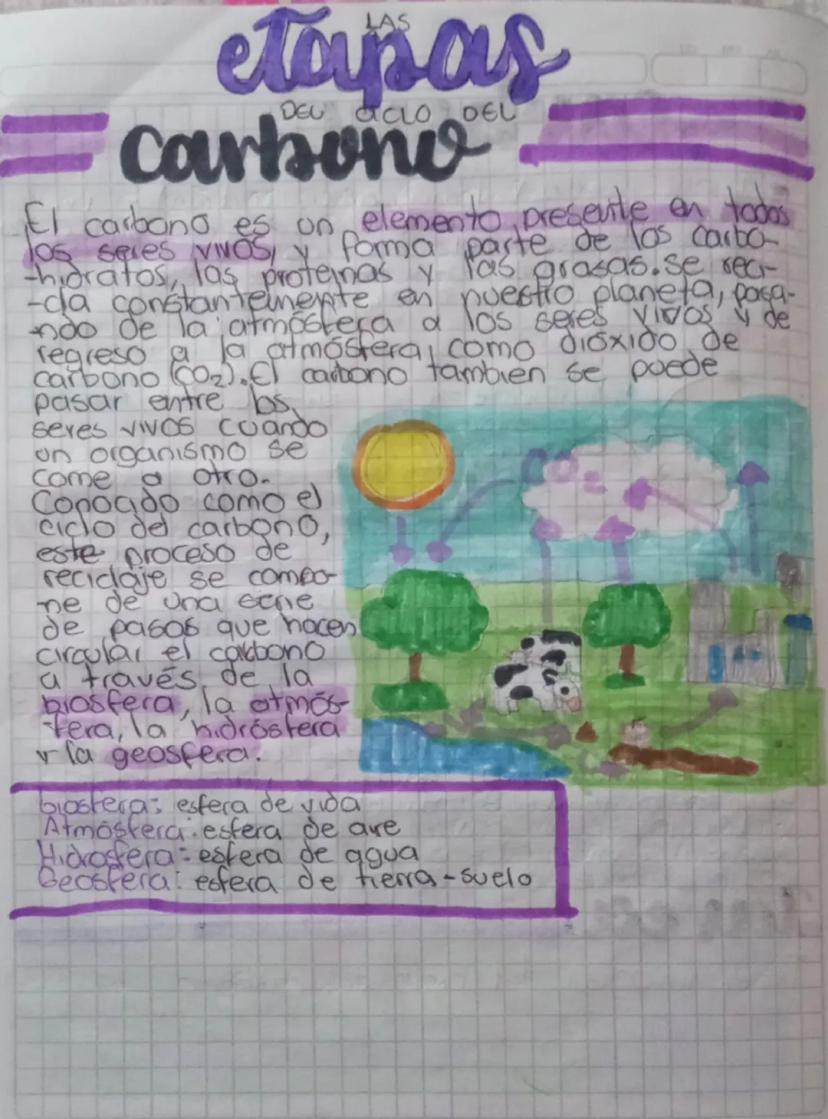 LAS
etapas
DEL CICLO DEL
carbono
El carbono es un elemento presente en todos
los seres vivos, y forma parte de los carbo-
-hidratos, las proteinas y las grasas. se reci-
-cla constantemente en nuestro planeta, pasa-
-ndo de la atmósfera a los seres vivos y de
regreso a la atmósfera, como dióxido de
carbono (CO2). El carbono tambien se puede
pasar entre los
seres vivos cuando
un organismo se
come a otro.
Conocido como el
ciclo del carbono,
este proceso de
reciclaje se compo-
ne de una serie
de pasos que hacen
circular el carbono
a través de la
biosfera, la atmós-
fera, la hidrósfera
y la geosfera.
CO2
biosfera: esfera de vida
Atmósfera: esfera de aire
Hidrosfera: esfera de agua
Geosfera: esfera de tierra-suelo